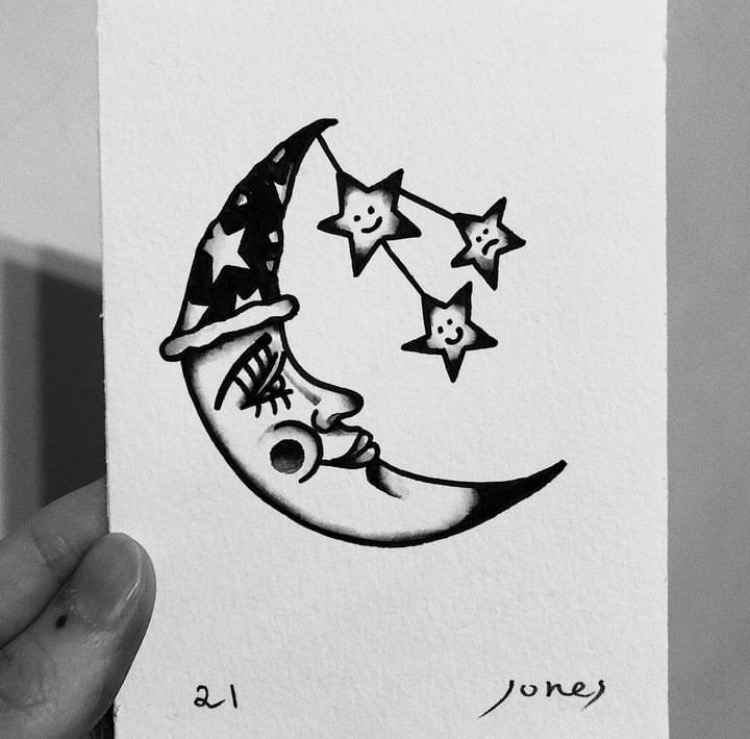 21 Jones